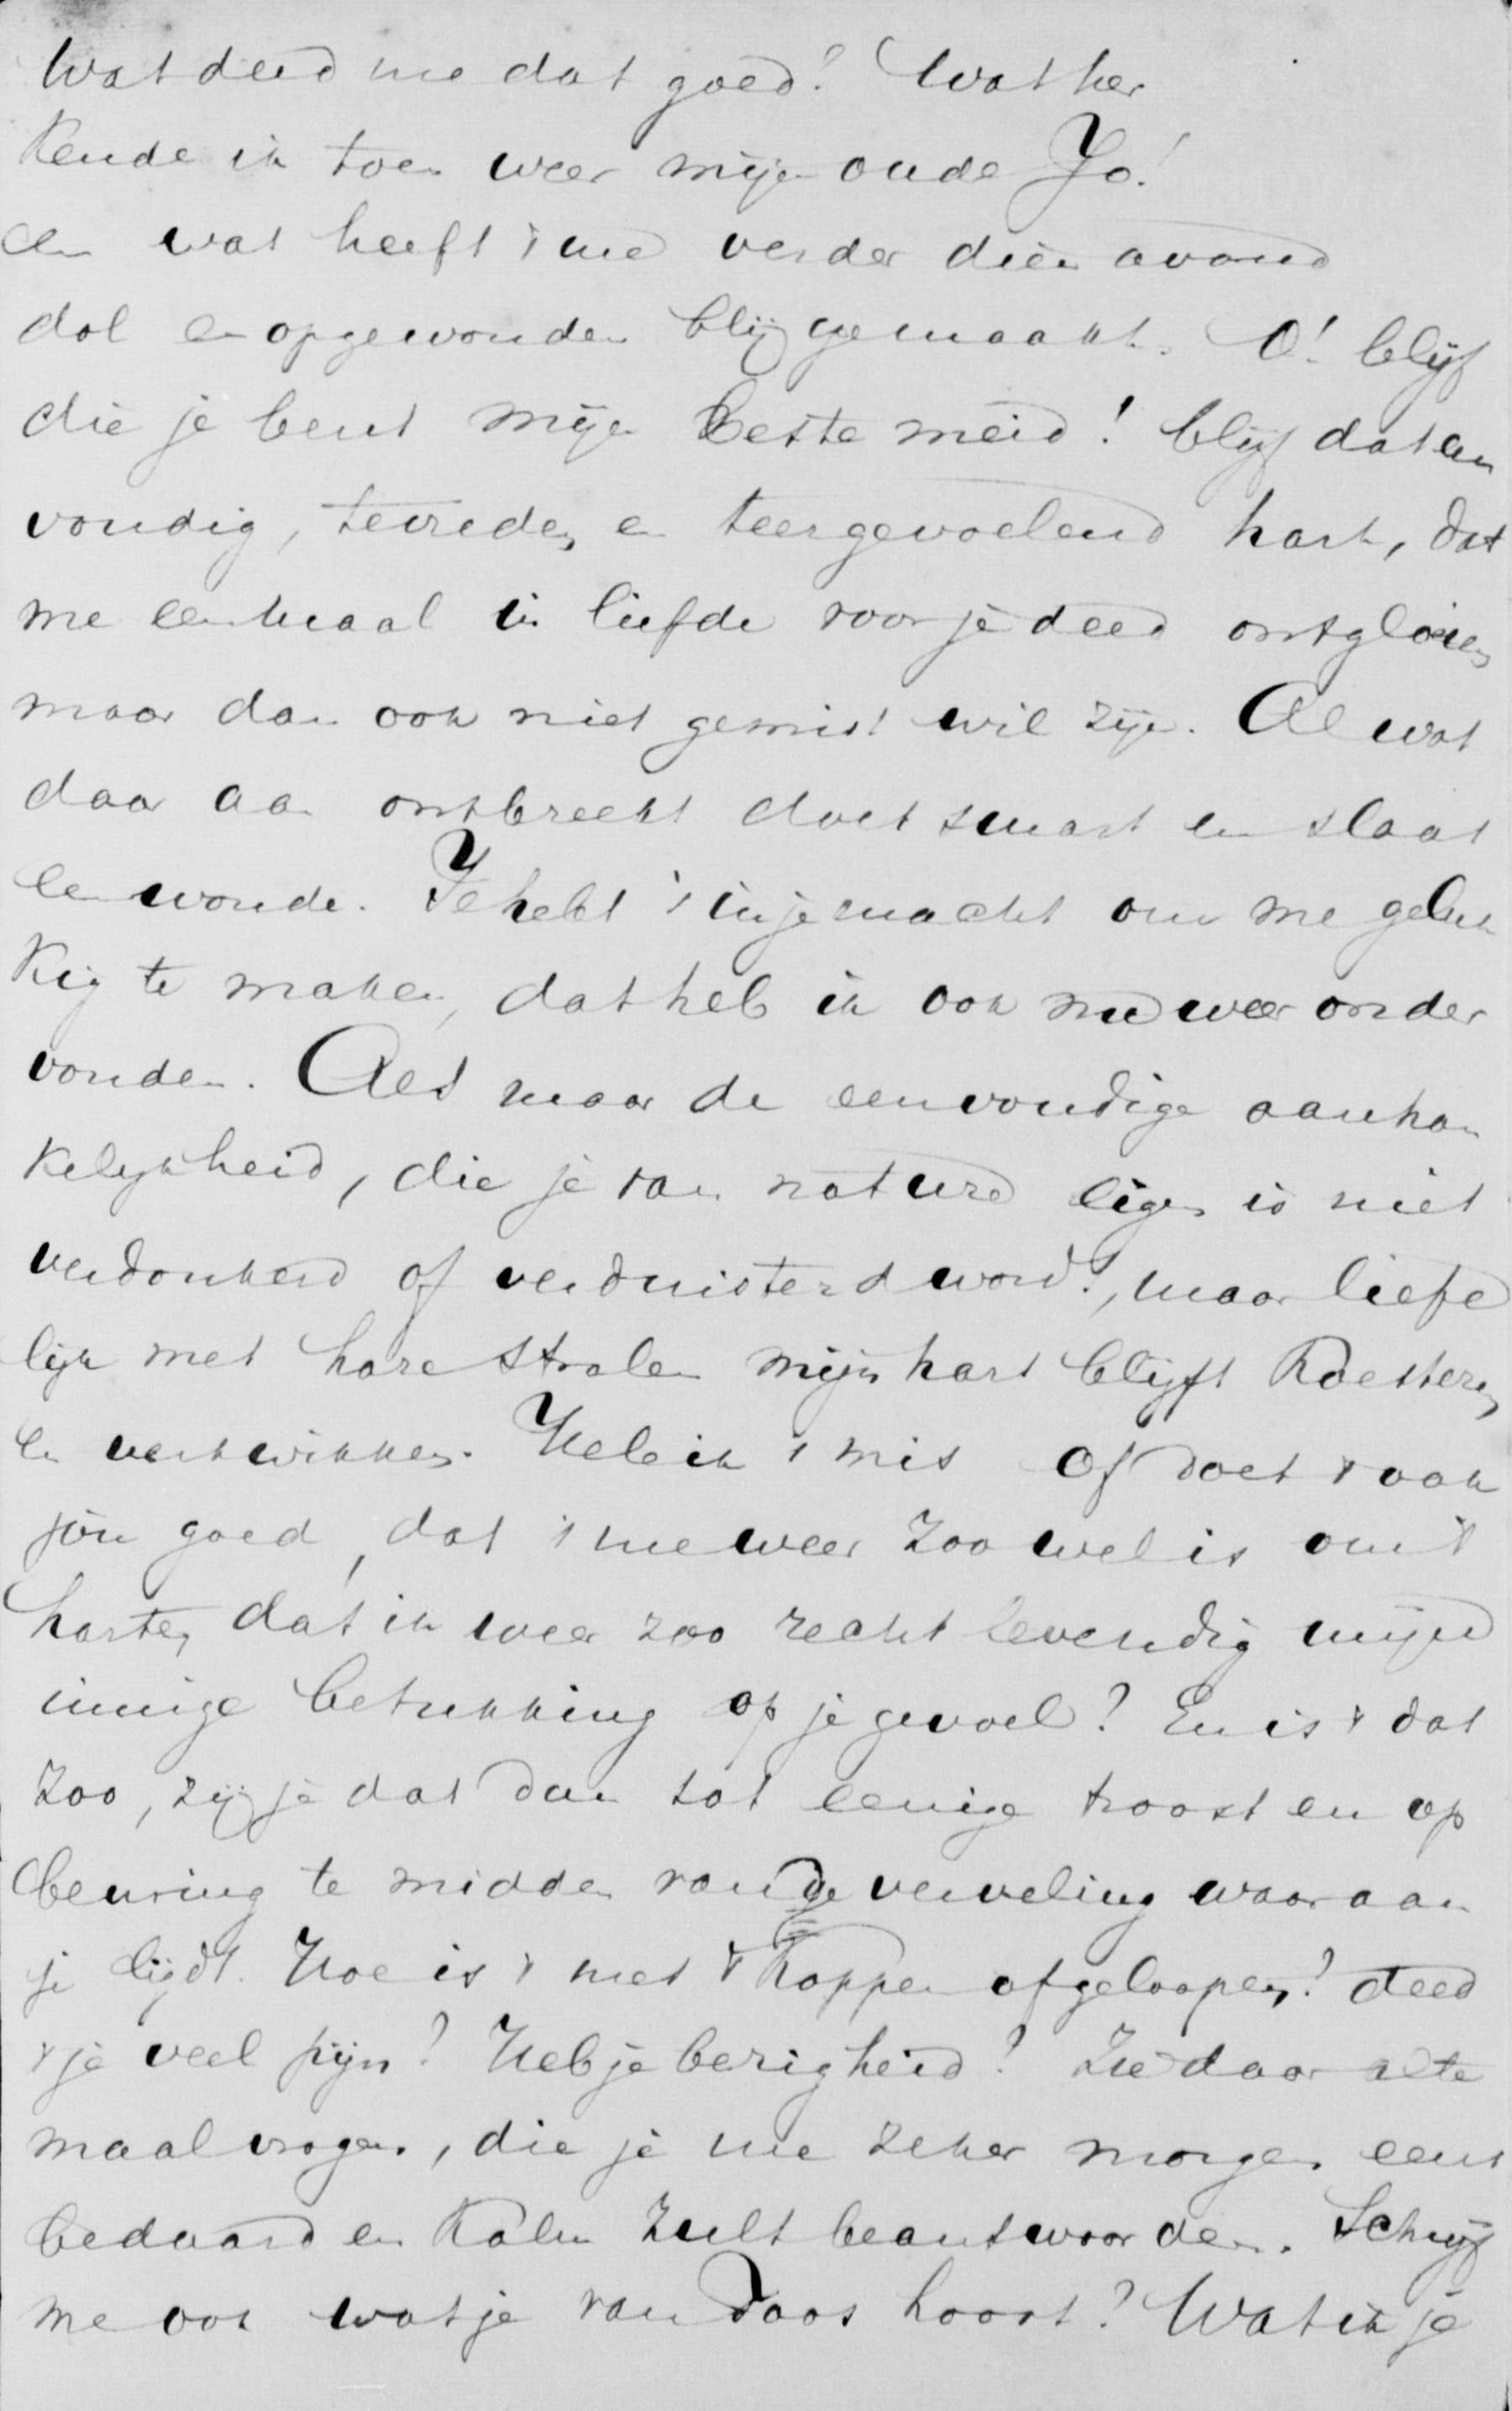 Wat deed me dat goed! Wat her
kende ik toen weer mijn oude Jo!
en wat heeft 't me verder dien avond
dol en opgewonden blij gemaakt. O! blijf
die je bent mijn beste meid! blijf dat een
voudig, tevreden en teergevoelend hart, dat
me eenmaal in liefde voor je deed ontgloeien
maar dan ook niet gemist wil zijn. Al wat
daar aan ontbreekt doet smart en slaat
een wonde. Je hebt 't in je macht om me geluk
kig te maken, dat heb ik ook nu weer onder
vonden. Als maar de eenvoudige aanhan
kelijkheid, die je van nature eigen is niet
verdonkerd of verduisterd word!, maar liefe
lijk met hare stralen mijn hart blijft koesteren
en verkwikken. Heb ik 't mis of doet 't ook
jou goed, dat 't me weer zoo wel is om 't
harte, dat ik weer zoo recht levendig mijne
innige betrekking op je gevoel? En is 't dat
zoo, zij je dat dan tot eenige troost en op
beuring te midden van de verveling waaraan
je lijdt. Hoe is 't met 't koppen afgeloopen? deed
't je veel pijn? Heb je bezigheid? Ziedaar alte
maal vragen, die je me zeker morgen eens
bedaard en kalm zult beantwoorden. Schrijf
me ook wat je van Daos hoort? Wat ik je